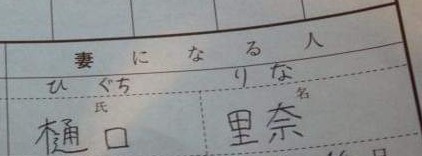 妻になる人
ひぐち りな
氏 名
樋口 里奈